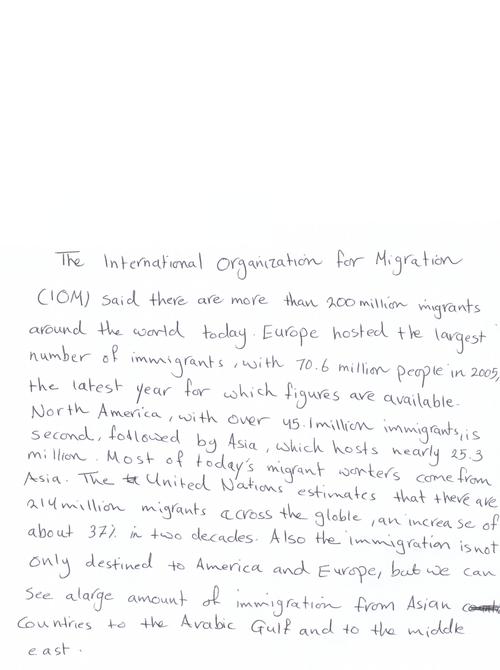 The International Organization for Migration
(IOM) said there are more than 200 million migrants
around the world today. Europe hosted the largest
number of immigrants, with 70.6 million people in 2005,
the latest year for which figures are available.
North America, with over 45.1 million immigrants, is
second, followed by Asia, which hosts nearly 25.3
million. Most of today's migrant workers come from
Asia. The United Nations estimates that there are
214 million migrants across the globle, an increase of
about 37% in two decades. Also the immigration is not
only destined to America and Europe, but we can
see alarge amount of immigration from Asian
Countries to the Arabic Gulf and to the middle
east.